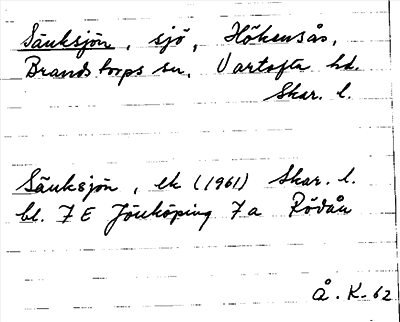 Sänksjön, sjö, Hökensås,
Brandstorps sn, Vartofta hd.
Skar. l.
Sänksjön, ek (1961) Skar. l.
bl. 7 E Jönköping 7 a Rödån
Å. K. 62